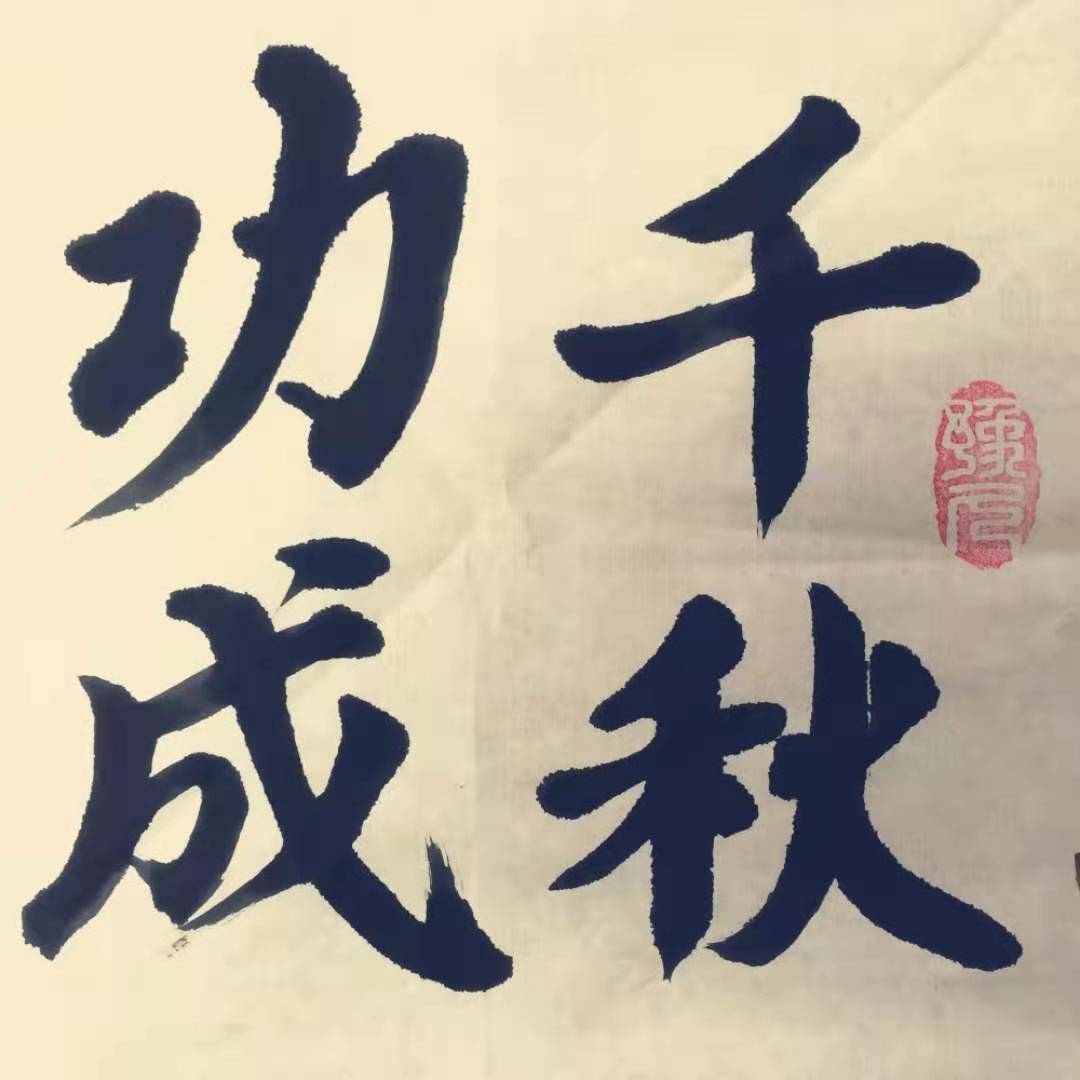 千秋
功成